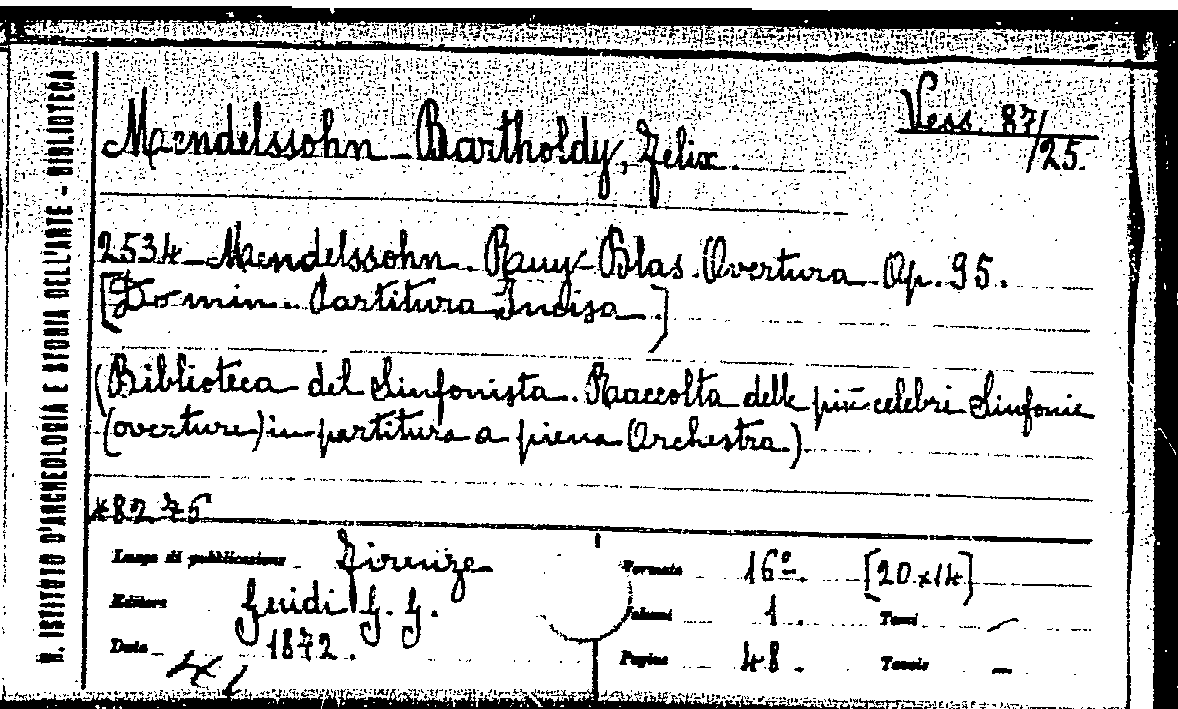 R. ISTITUTO D'ARCHEOLOGIA E STORIA DELL'ARTE - BIBLIOTECA
Mendelssohn - Bartholdy, Felix.
Vess. 87/
/25.
2534 - Mendelssohn. Ruy-Blas. Overtura Op. 95.
[Do min. Partitura Incisa.]
(Biblioteca del Sinfonista. Raccolta delle più celebri Sinfonie
(overture) in partitura a piena Orchestra.)
*8275
Luogo di pubblicazione Firenze
Formato 16º. [20x14]
Editore Guidi G. G.
Volumi 1. Tomi –
Data 1872.
Pagine 48. Tavole –